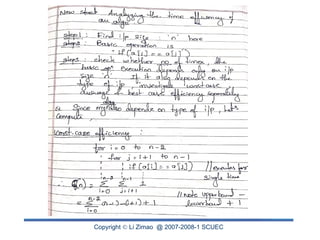 Now start Analyzing the time efficiency of
an algo
step1: Find i/p size : 'n' here
step2: Basic operation is
: if (a[i] == a[j])
step3: check whether no of times, the
basic opn execution depends only on i/p
size 'n'. If it also depends on the
type of i/p investigate worst case
average & best case efficiency separately
Since algo also depends on type of i/p, let's
compute,
Worst-case efficiency :
for i=0 to n-2
for j = i+1 to n-1
if (a[i] == a[j]) // executes for
single time
∴ C(n) = Σ Σ 1
i=0 j=i+1
n-2 n-1
// note upperbound -
= Σ (n-1)-(i+1)+1 lowerbound + 1
i=0
Copyright © Li Zimao @ 2007-2008-1 SCUEC